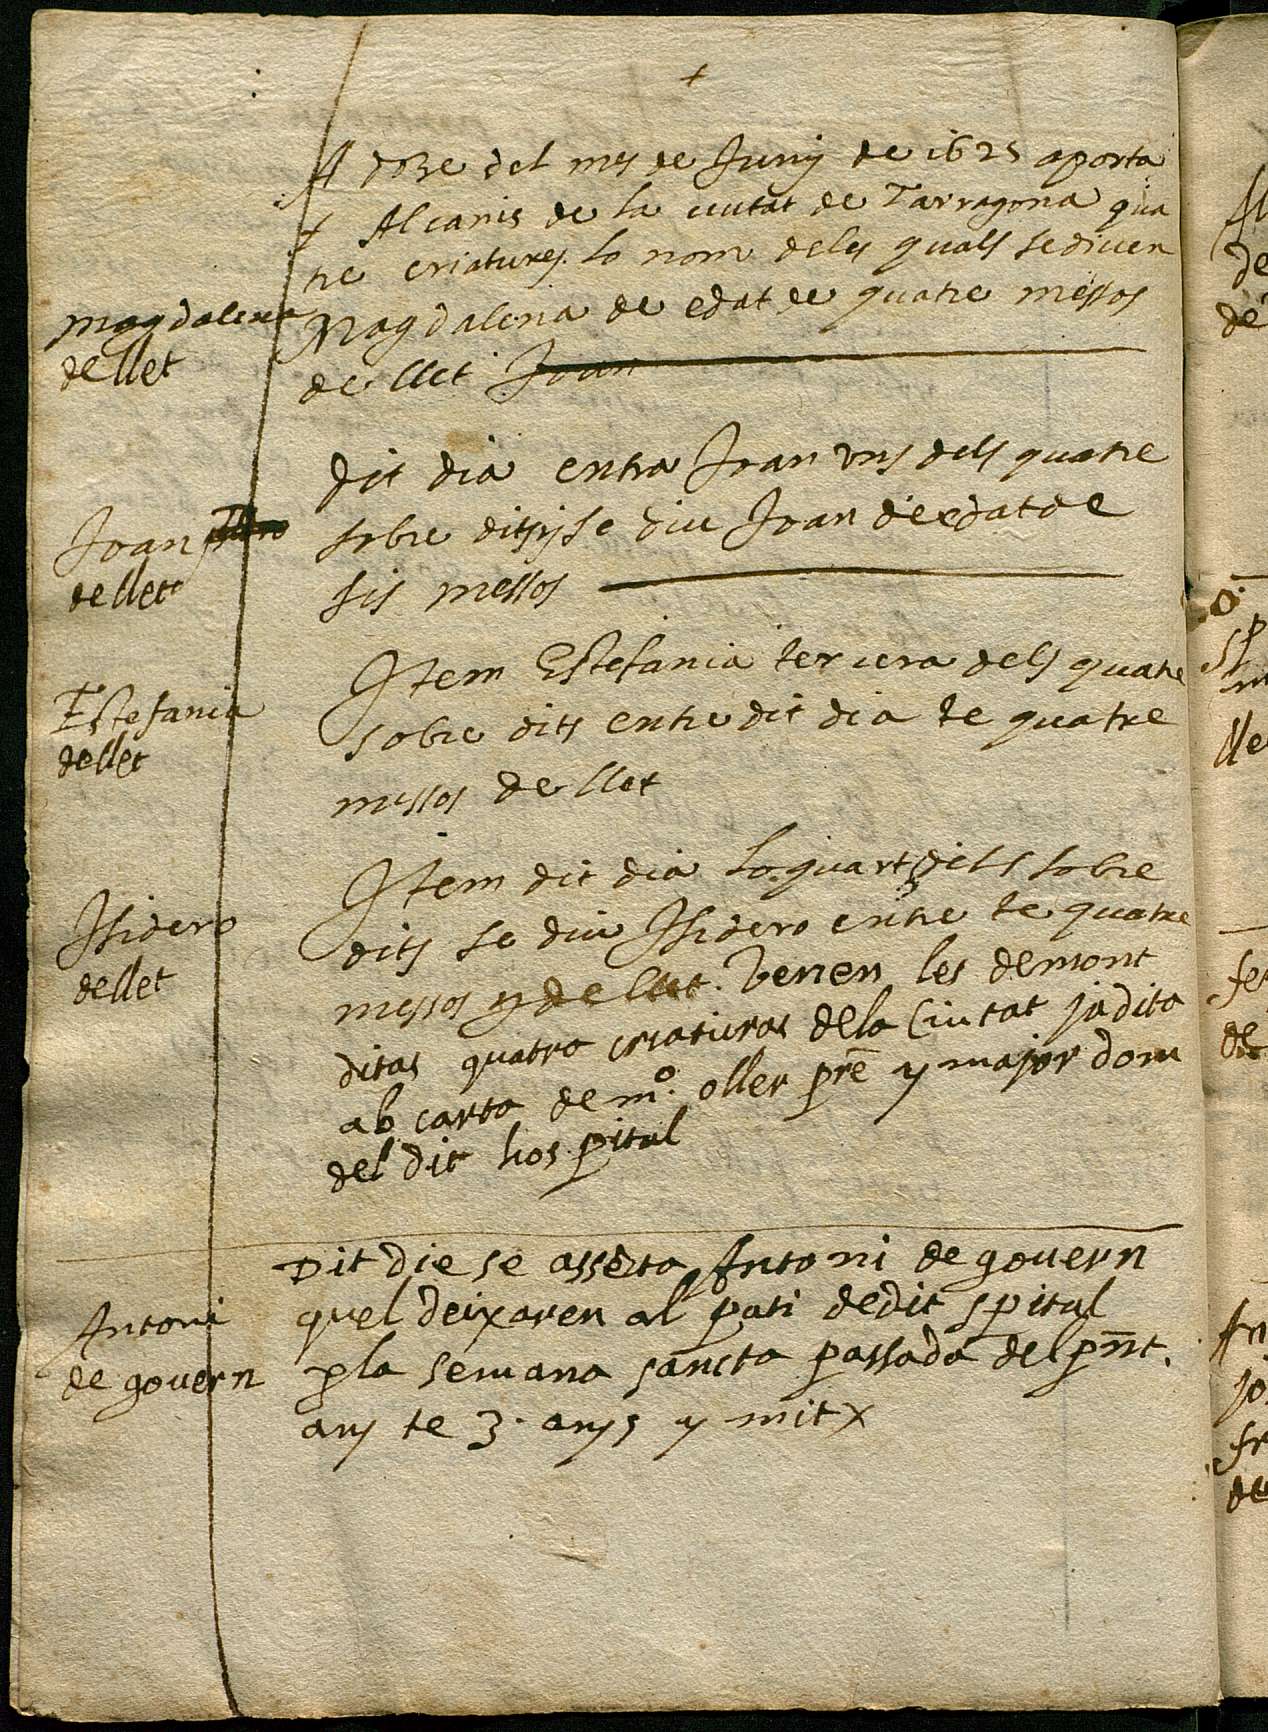 +
A dotze del mes de Juny de 1625 aporta
+ Alcanis de la ciutat de Tarragona qua
tre criatures lo nom deles quals se diuen
Magdalena
de llet
Magdalena de edat de quatre messos
de llet Joan
Joan
de llet
dit dia entra Joan uns dels quatre
sobre dits y se diu Joan de edat de
sis messos
Estefania
de llet
Item Estefania tercera dels quatre
sobre dits entre dit dia te quatre
messos de llet
Isidero
de llet
Item dit dia lo quart dels sobre
dits se diu Isidero entre te quatre
messos y de llet. Venen les demont
ditas quatra criaturas dela Ciutat ja dita
ab carta de mº. oller pre y major dom
del dit hospital
Antoni
de govern
Dit die se asserta Antoni de govern
quel deixaren al pati de dit spital
p la semana sancta passada del pnt.
any te 3. anys y mitx